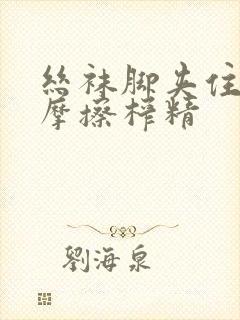 絲袜脚夹住
摩擦榨精
劉海泉